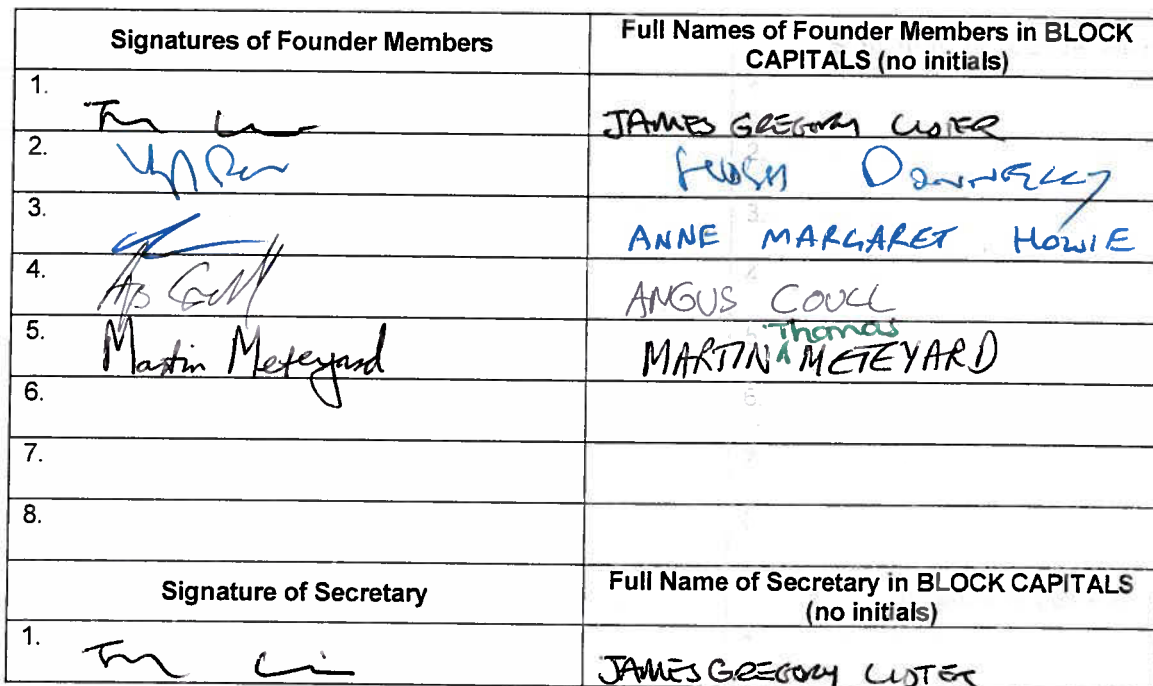 Signatures of Founder Members
Full Names of Founder Members in BLOCK CAPITALS (no initials)
1.
JAMES GREGORY
2.
DONNELLY
3.
ANNE MARGARET HOWIE
4.
ANGUS COULL
5.
Martin Meteyard
MARTIN Thomas METEYARD
6.
7.
8.
Signature of Secretary
Full Name of Secretary in BLOCK CAPITALS (no initials)
1.
JAMES GREGORY